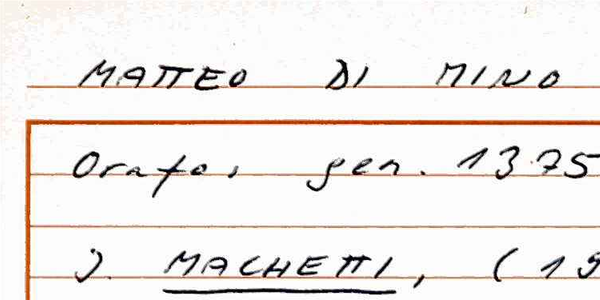 MATTEO DI MINO
Orafo, gen. 1375
J. MACHETTI, (19